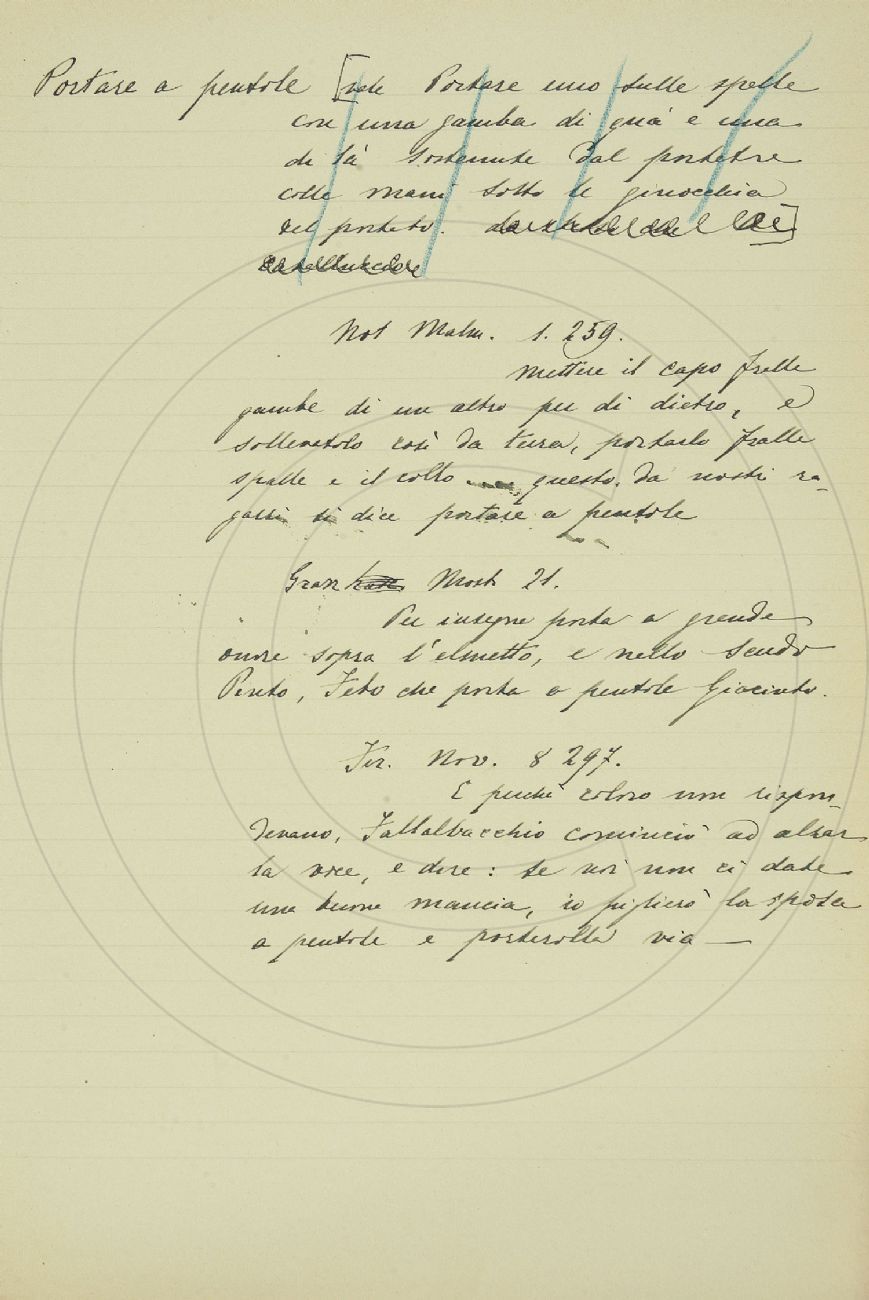 Portare a pentole [vale Portare uno sulle spalle
con una gamba di quà e una
di là sostenute dal portatore
colle mani sotto le ginocchia
del portato. ]
Not Malm. 1. 259.
Mettere il capo fralle
gambe di un altro per di dietro, e
sollevatolo così da terra, portarlo fralle
spalle e il collo questo da nostri ra-
gazzi si dice portare a pentole
Gran Most 21.
Per insegne porta a grande
onore sopra l'elmetto, e nello scudo
Pinto, Febo che porta a pentole Giacinto.
Fir. Nov. 8 297.
E perchè coloro non rispon-
devano, Fallalbacchio cominciò ad alzar
la voce, e dire: se voi non ci date
una buona mancia, io piglierò la sposa
a pentole e porterolla via —